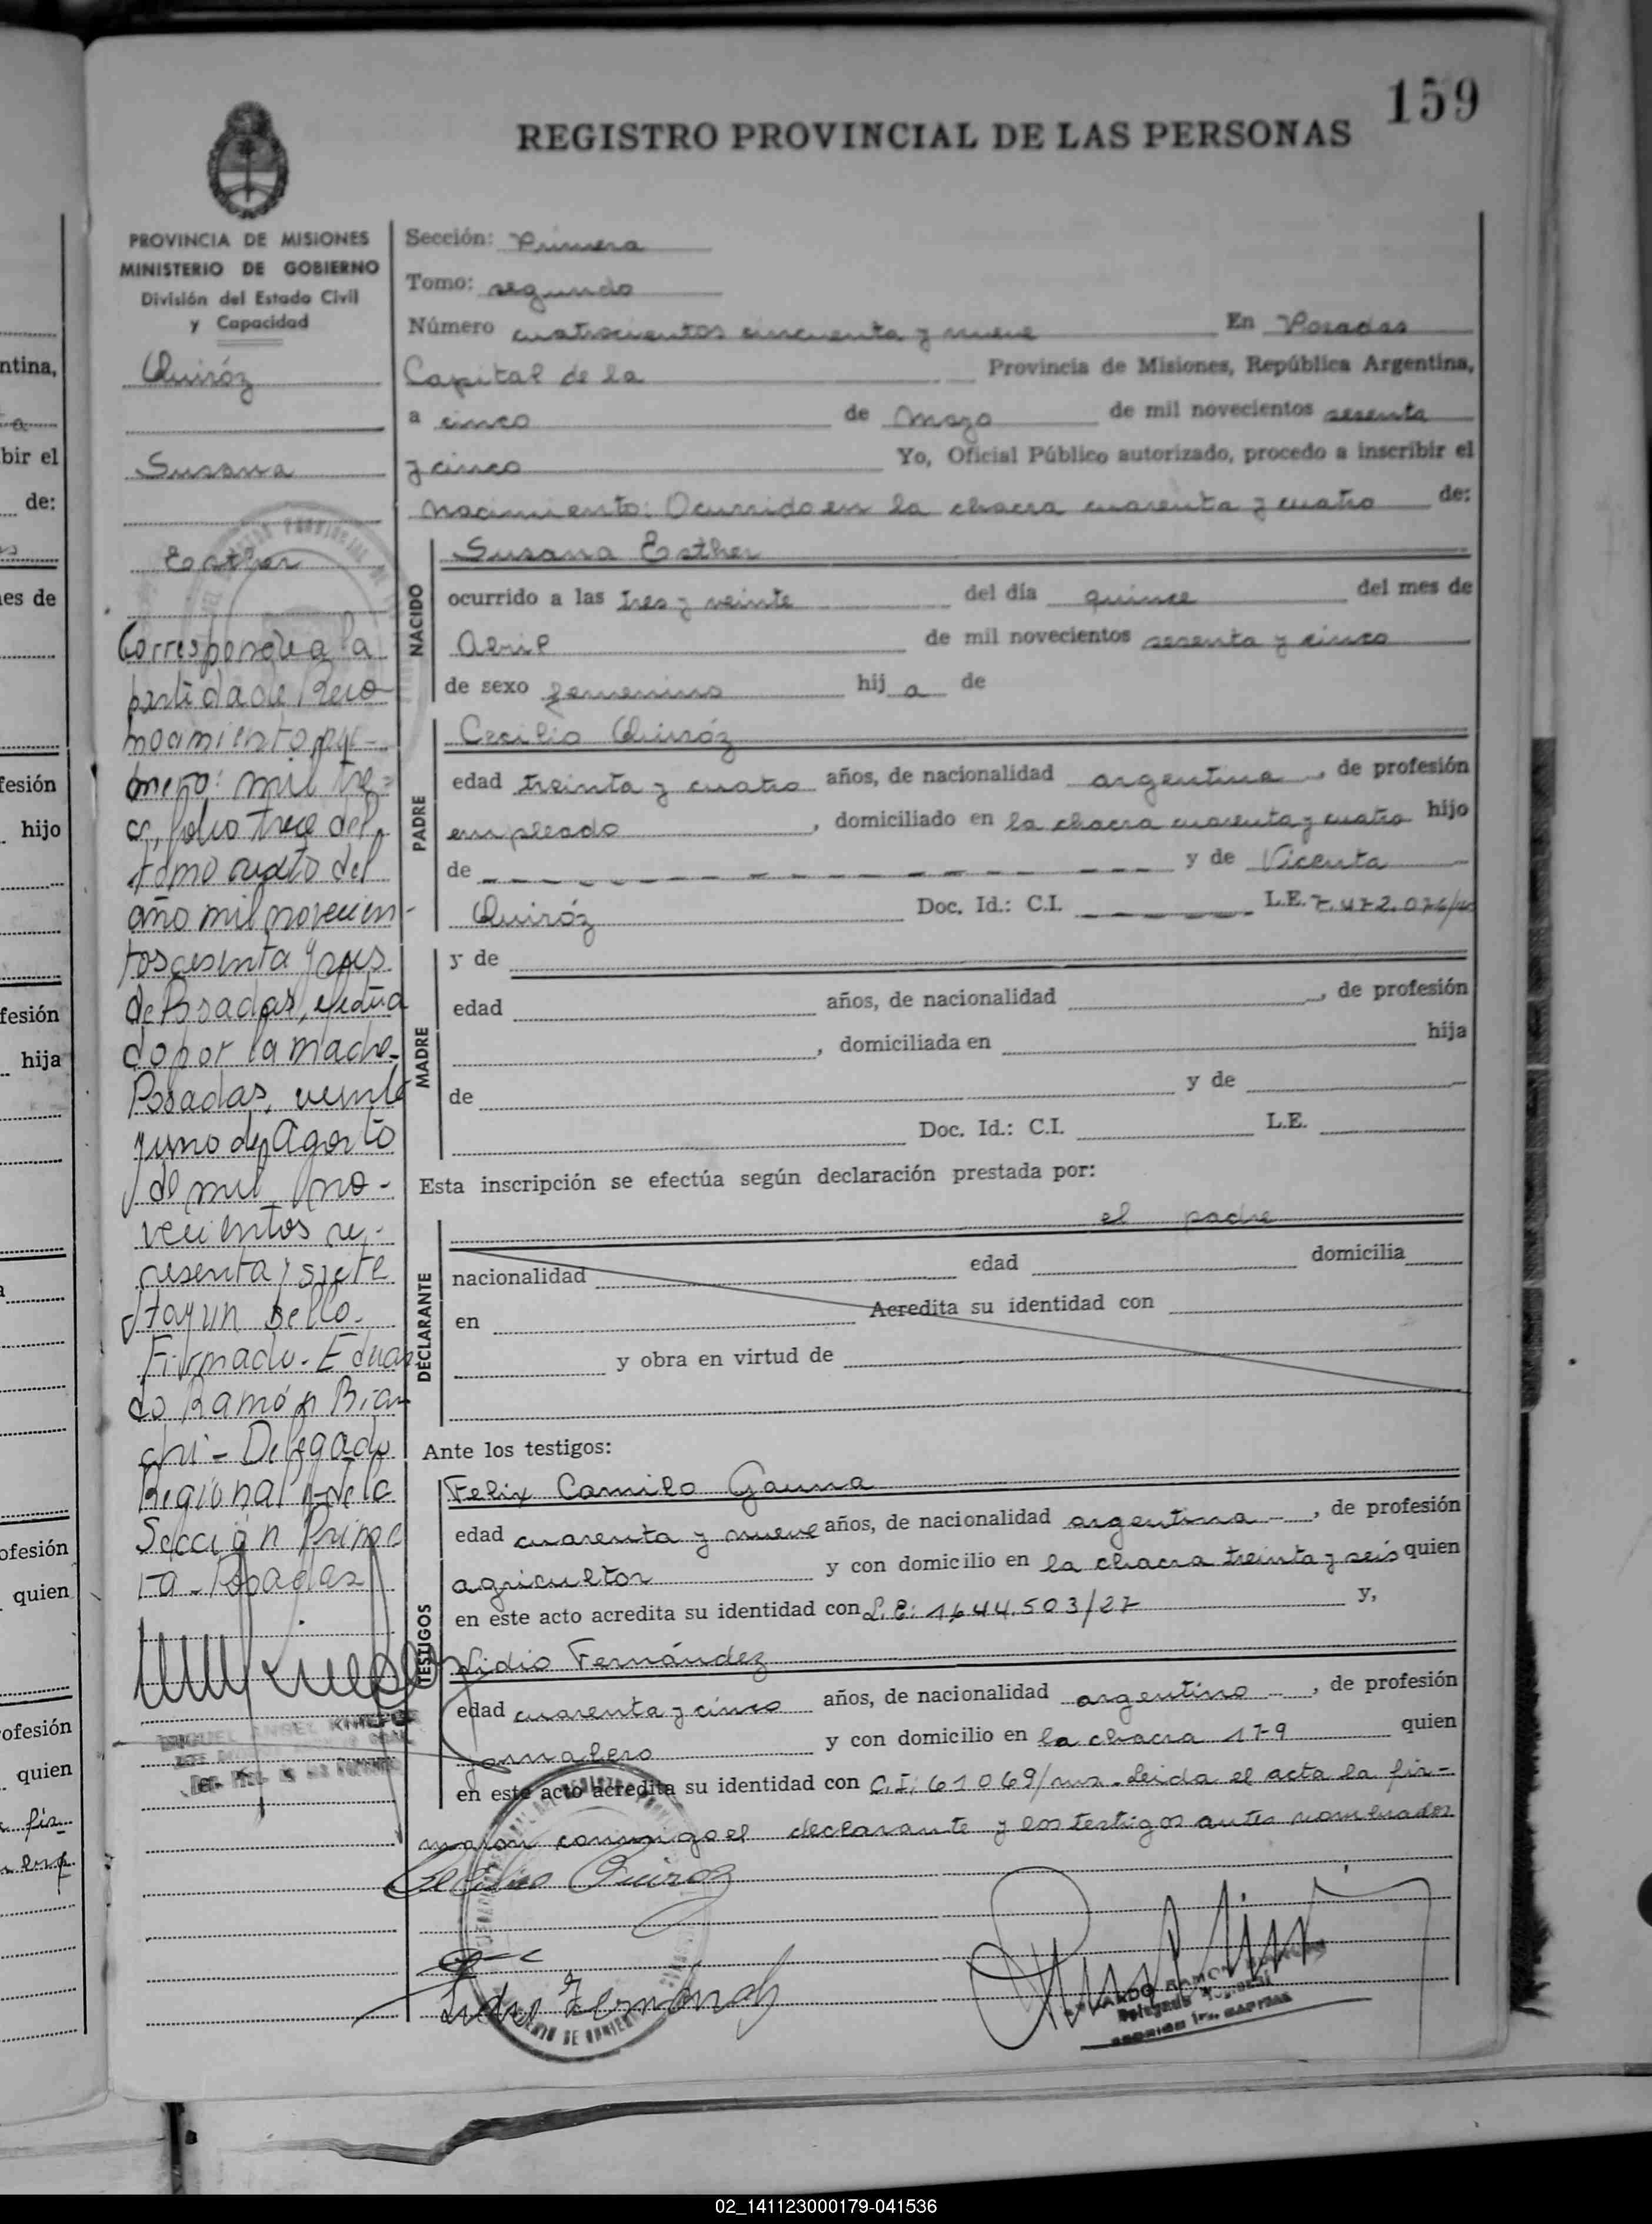 159
REGISTRO PROVINCIAL DE LAS PERSONAS
PROVINCIA DE MISIONES
MINISTERIO DE GOBIERNO
División del Estado Civil
y Capacidad
Quiróz
Susana
Esther
Corresponde a la
partida de Reco-
nocimiento nú-
mero: mil tre-
ce, folio trece del
tomo cuarto del
año mil novecien-
tos sesenta y seis
de Posadas, efectua
do por la madre.
Posadas, veinte
y uno de Agosto
de mil no-
vecientos se-
senta y siete
Hay un sello.
Firmado. Eduar
do Ramón Bian
chi - Delegado
Regional de la
Sección Prime
ra - Posadas
MIGUEL ANGEL
Sección: Primera
Tomo: segundo
Número cuatrocientos cincuenta y nueve En Posadas
Capital de la Provincia de Misiones, República Argentina,
a cinco de mayo de mil novecientos sesenta
y cinco Yo, Oficial Público autorizado, procedo a inscribir el
nacimiento: Ocurrido en la chacra cuarenta y cuatro de:
NACIDO
Susana Esther
ocurrido a las tres y veinte del día quince del mes de
Abril de mil novecientos sesenta y cinco
de sexo femenino hij a de
PADRE
Cecilio Quiróz
edad treinta y cuatro años, de nacionalidad argentina, de profesión
empleado, domiciliado en la chacra cuarenta y cuatro hijo
de - - - - - - - - - - y de Vicenta
Quiróz Doc. Id.: C.I. - - - - - L.E. 7.472.076
MADRE
y de
edad años, de nacionalidad , de profesión
, domiciliada en hija
de y de
Doc. Id.: C.I. L.E.
Esta inscripción se efectúa según declaración prestada por:
el padre
DECLARANTE
nacionalidad edad domicilia
en Acredita su identidad con
y obra en virtud de
Ante los testigos:
TESTIGOS
Felix Camilo Gauna
edad cuarenta y nueve años, de nacionalidad argentina -, de profesión
agricultor y con domicilio en la chacra treinta y seis quien
en este acto acredita su identidad con L.E: 1644.503/27 y,
Lidio Fernández
edad cuarenta y cinco años, de nacionalidad argentino -, de profesión
jornalero y con domicilio en la chacra 179 quien
en este acto acredita su identidad con C.I: 61069/mns. Leida el acta la fir-
maron conmigo el declarante y los testigos antes nombrados
Cecilio Quiroz
Lidio Fernández
EDUARDO RAMON BIANCHI
Delegado Regional
ntina,
bir el
de:
es de
fesión
hijo
fesión
hija
ofesión
quien
ofesión
quien
fir-
02_141123000179-041536